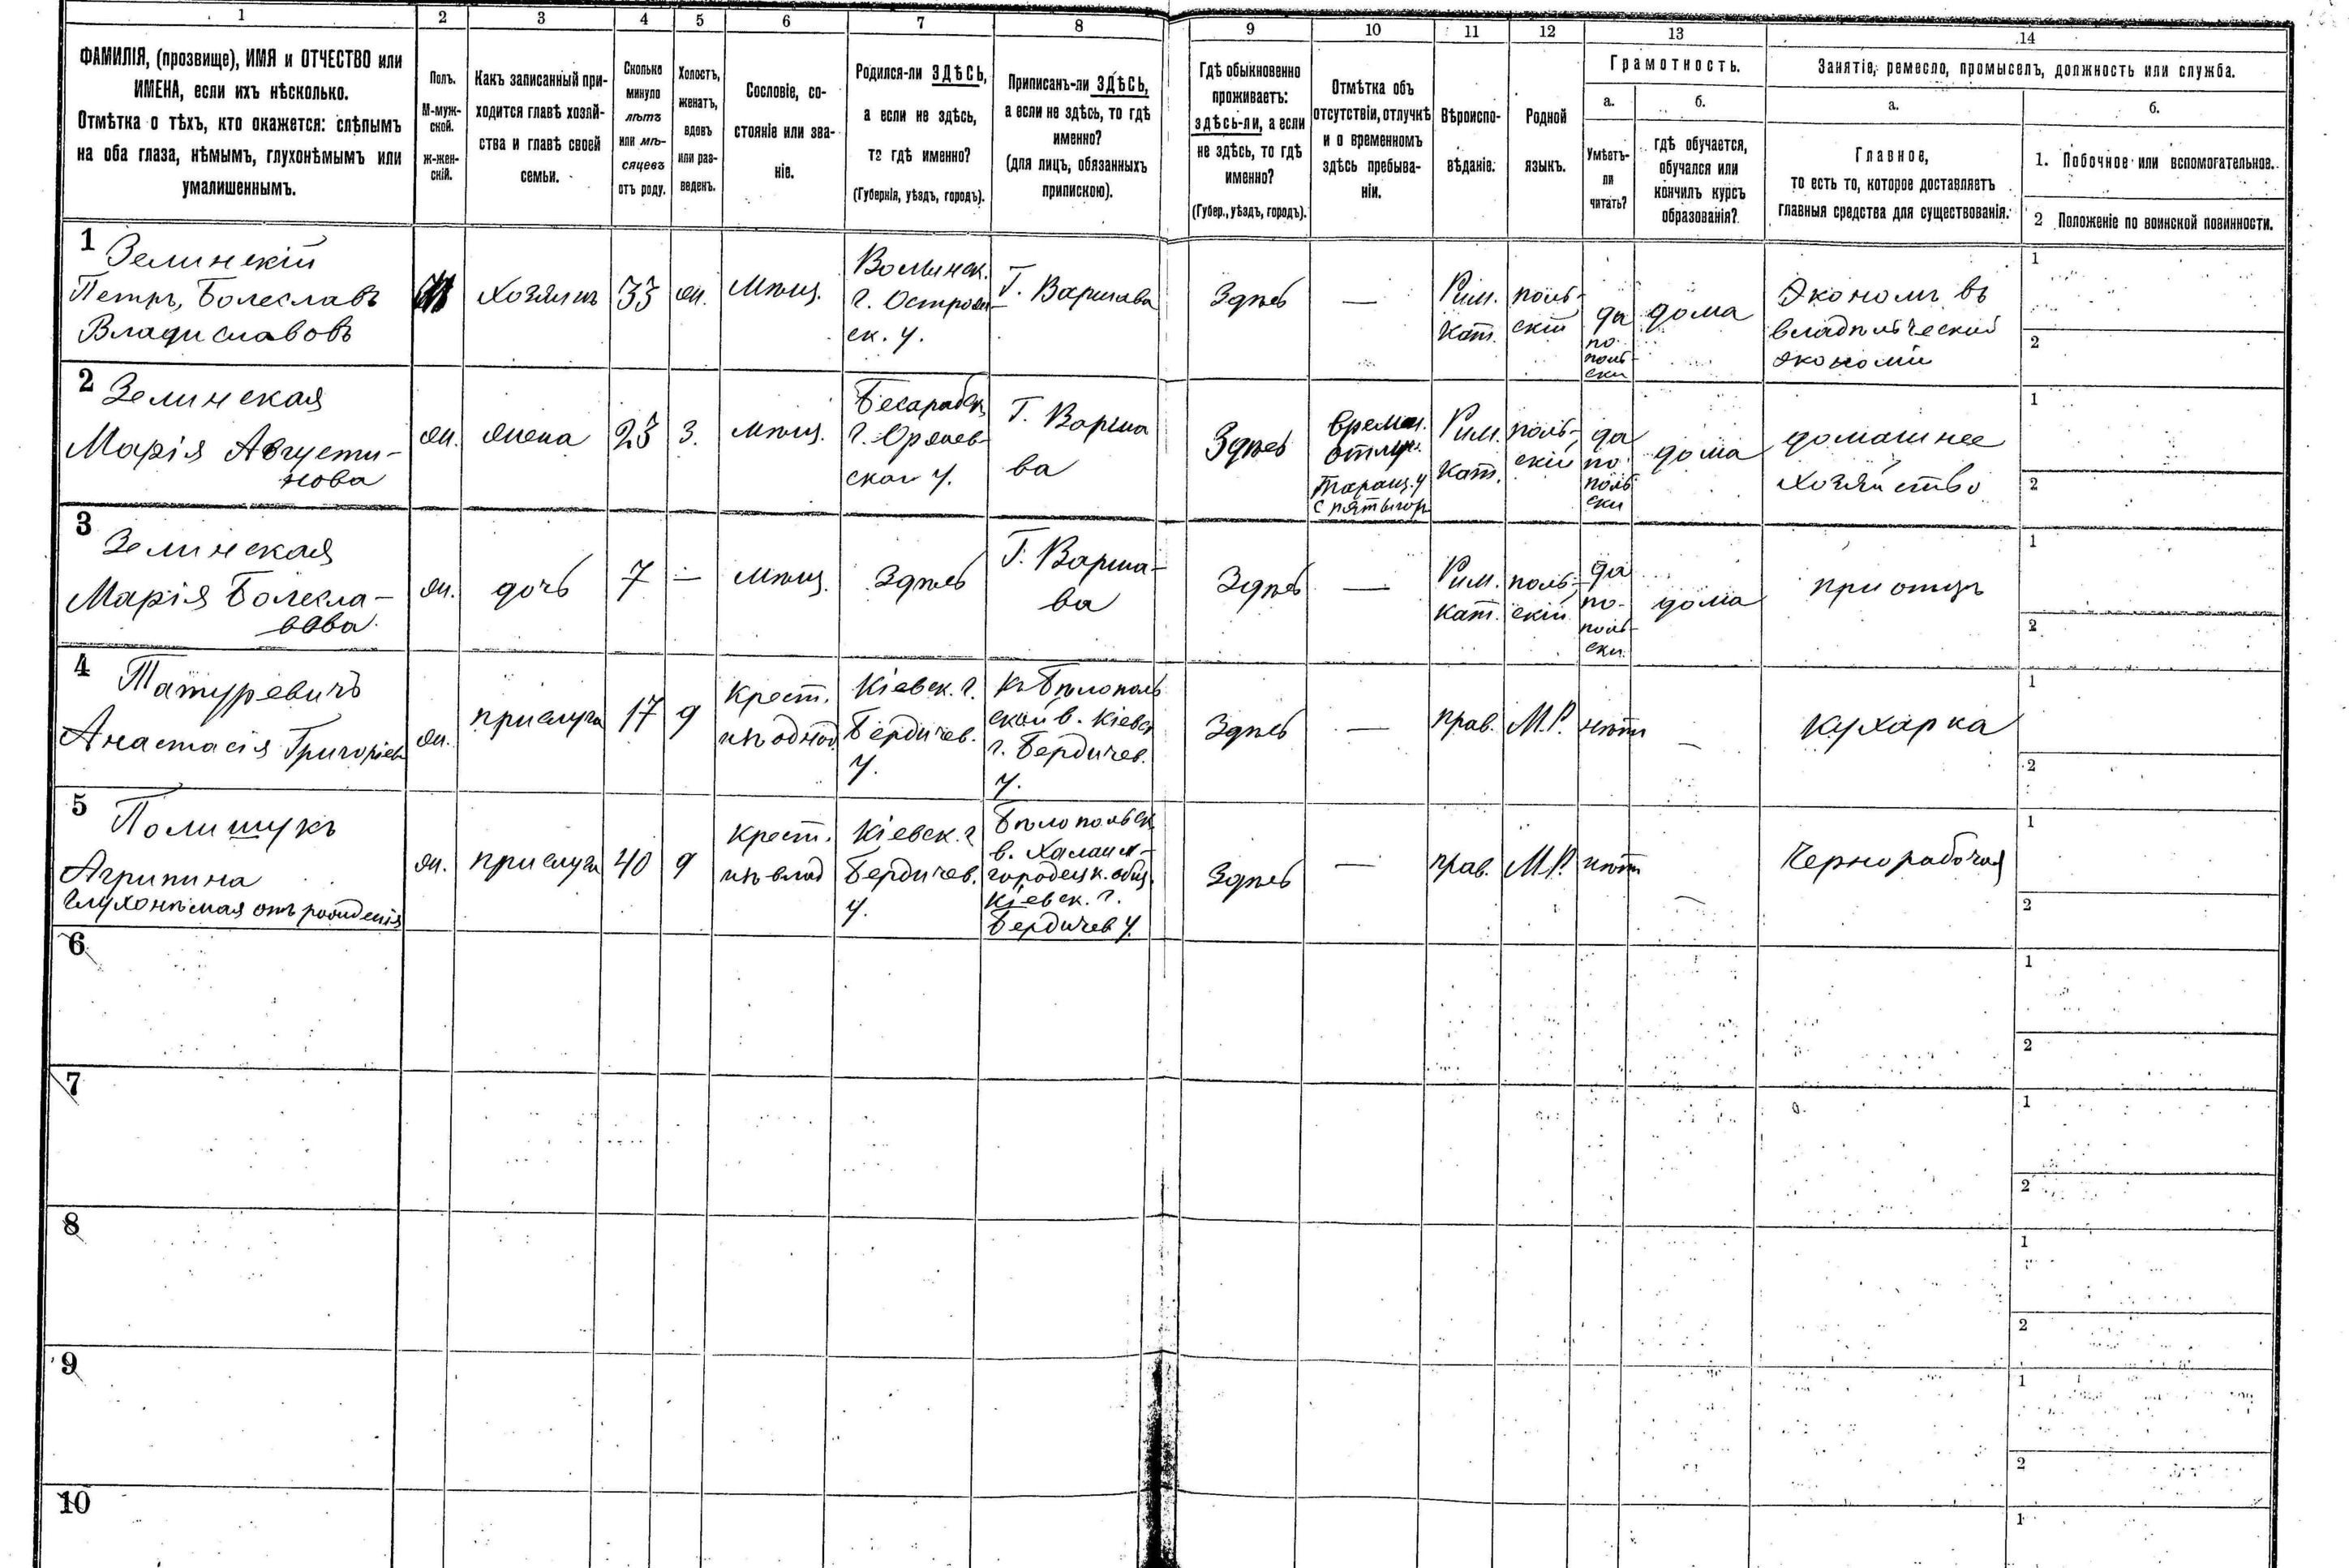 1 2 3 4 5 6 7 8 9 10 11 12 13 14
ФАМИЛІЯ, (прозвище), ИМЯ и ОТЧЕСТВО или
ИМЕНА, если ихъ нѣсколько.
Отмѣтка о тѣхъ, кто окажется: слѣпымъ
на оба глаза, нѣмымъ, глухонѣмымъ или
умалишеннымъ.
Полъ.
М-муж-
ской.
ж-жен-
скій.
Какъ записанный при-
ходится главѣ хозяй-
ства и главѣ своей
семьи.
Сколько
минуло
лѣтъ
или мѣ-
сяцевъ
отъ роду.
Холостъ,
женатъ,
вдовъ
или раз-
веденъ.
Сословіе, со-
стояніе или зва-
ніе.
Родился-ли ЗДѢСЬ,
а если не здѣсь,
то гдѣ именно?
(Губернія, уѣздъ, городъ).
Приписанъ-ли ЗДѢСЬ,
а если не здѣсь, то гдѣ
именно?
(для лицъ, обязанныхъ
припискою).
Гдѣ обыкновенно
проживаетъ:
здѣсь-ли, а если
не здѣсь, то гдѣ
именно?
(Губер., уѣздъ, городъ).
Отмѣтка объ
отсутствіи, отлучкѣ
и о временномъ
здѣсь пребыва-
ніи.
Вѣроиспо-
вѣданіе.
Родной
языкъ.
Грамотность.
а.
Умѣетъ-
ли
читать?
б.
гдѣ обучается,
обучался или
кончилъ курсъ
образованія?
Занятіе, ремесло, промыселъ, должность или служба.
а.
Главное,
то есть то, которое доставляетъ
главныя средства для существованія.
б.
1. Побочное или вспомогательное.
2 Положеніе по воинской повинности.
1
Зелинскій
Петръ, Болеславъ
Владиславовъ
М
Хозяинъ
33
ж.
Мѣщ.
Волынск.
г. Острож-
ск. у.
Г. Варшава
Здѣсь
—
Рим.
Кат.
поль-
скій
да
по
поль-
ски
дома
Экономъ въ
владѣльческой
экономіи
1
2
2
Зелинская
Марія Августи-
нова
ж.
жена
23
З.
мѣщ.
Бесарабск.
г. Оргѣев-
ског у.
Г. Варша
ва
Здѣсь
Времен.
отлуч.
Таращ. у
с пятигор
Рим.
Кат.
поль-
скій
да
по
поль
ски
дома
домашнее
хозяйство
1
2
3
Зелинская
Марія Болесла-
вова
ж.
дочь
7
—
Мѣщ.
Здѣсь
Г. Варша-
ва
Здѣсь
—
Рим.
Кат.
поль-
скій
да
по-
поль-
ски
дома
при отцѣ
1
2
4
Татуревичъ
Анастасія Григоріев
ж.
прислуга
17
д
Крест.
изъ однод
Кіевск. г.
Бердичев.
у.
Бѣлополь
ской в. Кіевс
г. Бердичев.
у.
Здѣсь
—
прав.
М.Р.
нѣтъ
—
Кухарка
1
2
5
Полишукъ
Агрипина
Глухонѣмая отъ рожденія
ж.
прислуга
40
д
Крест.
изъ влад
Кіевск. г
Бердичев.
у.
Бѣлопольск
в. Халаим-
городецк. общ.
Кіевск. г.
Бердичев у.
Здѣсь
—
прав.
М.Р.
нѣтъ
—
Чернорабочая
1
2
6
1
2
7
1
2
8
1
2
9
1
2
10
1